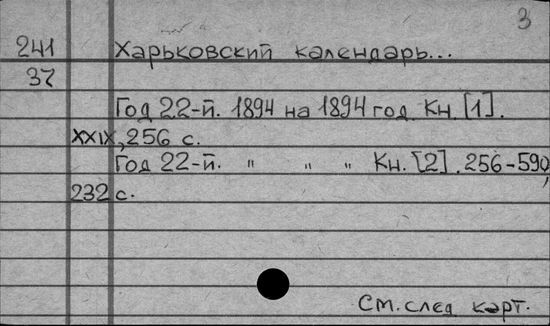 3
241 Харьковский календарь...
37
Год 22-й. 1894 на 1894 год. Кн. [1].
XXIX, 256 с.
Год 22-й. " " " Кн. [2]. 256-590,
232 с.
См. след карт.